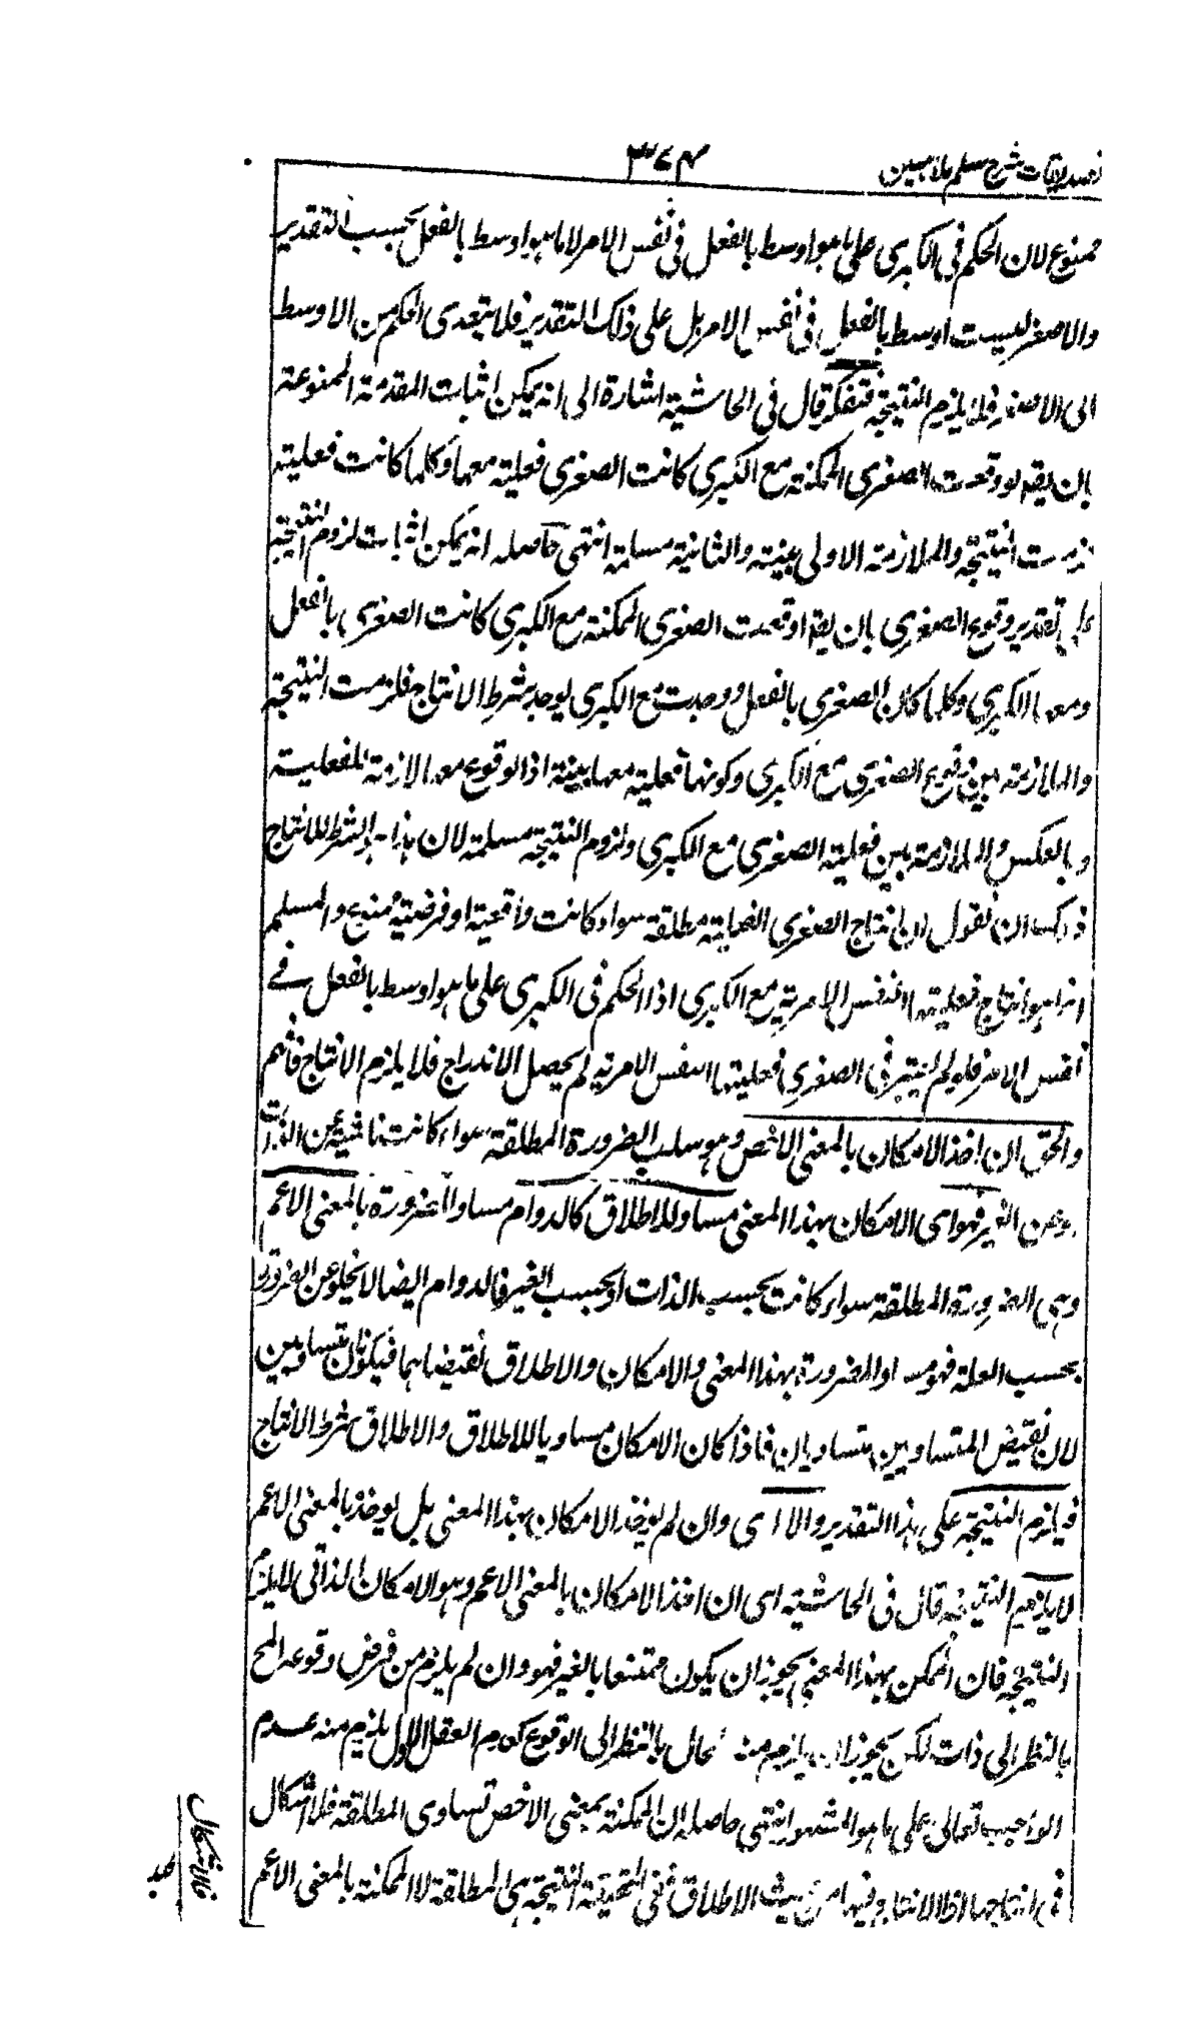 تصديقات شرح سلم ملا مبين
٣٧٤
ممنوع لان الحكم فى الكبرى على ما هو اوسط بالفعل فى نفس الامر لا ما هو اوسط بالفعل بحسب التقدير
والاصغر ليست اوسط بالفعل فى نفس الامر بل على ذلك التقدير فلا يتعدى الحكم من الاوسط
الى الاصغر فلا يلزم النتيجة فتفكر قال فى الحاشية اشارة الى انه يمكن اثبات المقدمة الممنوعة
بان يقم لو وقعت الصغرى الممكنة مع الكبرى كانت الصغرى فعلية معها وكلما كانت فعلية
لزمت النتيجة والملازمة الاولى بينة والثانية مسلمة انتهى حاصله انه يمكن اثبات لزوم النتيجة
على تقدير وقوع الصغرى بان يقم لو وقعت الصغرى الممكنة مع الكبرى كانت الصغرى بالفعل
ومعها الكبرى وكلما كان الصغرى بالفعل ووجدت مع الكبرى يوجد شرط الانتاج فلزمت النتيجة
والملازمة بين وقوع الصغرى مع الكبرى وكونها فعلية معها بينة اذ الوقوع معه لازمة للفعلية
وبالعكس والملازمة بين فعلية الصغرى مع الكبرى ولزوم النتيجة مسلمة لان هذا هو الشرط للانتاج
ولك ان نقول ان انتاج الصغرى الفعلية مطلقة سواء كانت واقعية او فرضية ممنوع والمسلم
انما هو انتاج فعليتها النفس الامرية مع الكبرى اذ الحكم فى الكبرى على ما هو اوسط بالفعل فے
نفس الامر فلو لم يعتبر فى الصغرى فعليتها النفس الامرية لم يحصل الاندراج فلا يلزم الانتاج فافهم
والحق ان اخذ الامكان بالمعنى الاخص وهو سلب الضرورة المطلقة سواء كانت ناشية عن الذات
او عن الغير فهو اى الامكان بهذا المعنى مساو للاطلاق كالدوام مساو الضرورة بالمعنى الاعم
وهى الضرورة المطلقة سواء كانت بحسب الذات او بحسب الغير فالدوام ايضا لا يخلو عن الضرورة
بحسب العلة فهو مساو الضرورة بهذا المعنى والامكان والاطلاق نقيضاهما فيكونان متساويين
لان نقيض المتساويين متساويان فاذا كان الامكان مساويا للاطلاق والاطلاق شرط الانتاج
فيلزم النتيجة على هذا التقدير والا اى وان لم يوخذ الامكان بهذا المعنى بل يوخذ بالمعنى الاعم
لا يلزم النتيجة قال فى الحاشية اى ان اخذ الامكان بالمعنى الاعم وهو الامكان الذاتى لا يلزم
النتيجة فان الممكن بهذا المعنى يجوز ان يكون ممتنعا بالغير فهو وان لم يلزم من فرض وقوعه المح
بالنظر الى ذات لكن يجوز ان يلزم منه محال بالنظر الى الوقوع كعدم العقل الاول يلزم منه عدم
الواجب تعالى على ما هو المشهور انتهى حاصله ان الممكنة بمعنى الاخص تساوى المطلقة فلا اشكال
فى انتاجها اذ الانتاج فيها من حيث الاطلاق ففى الحقيقة النتيجة هى المطلقة لا الممكنة بالمعنى الاعم